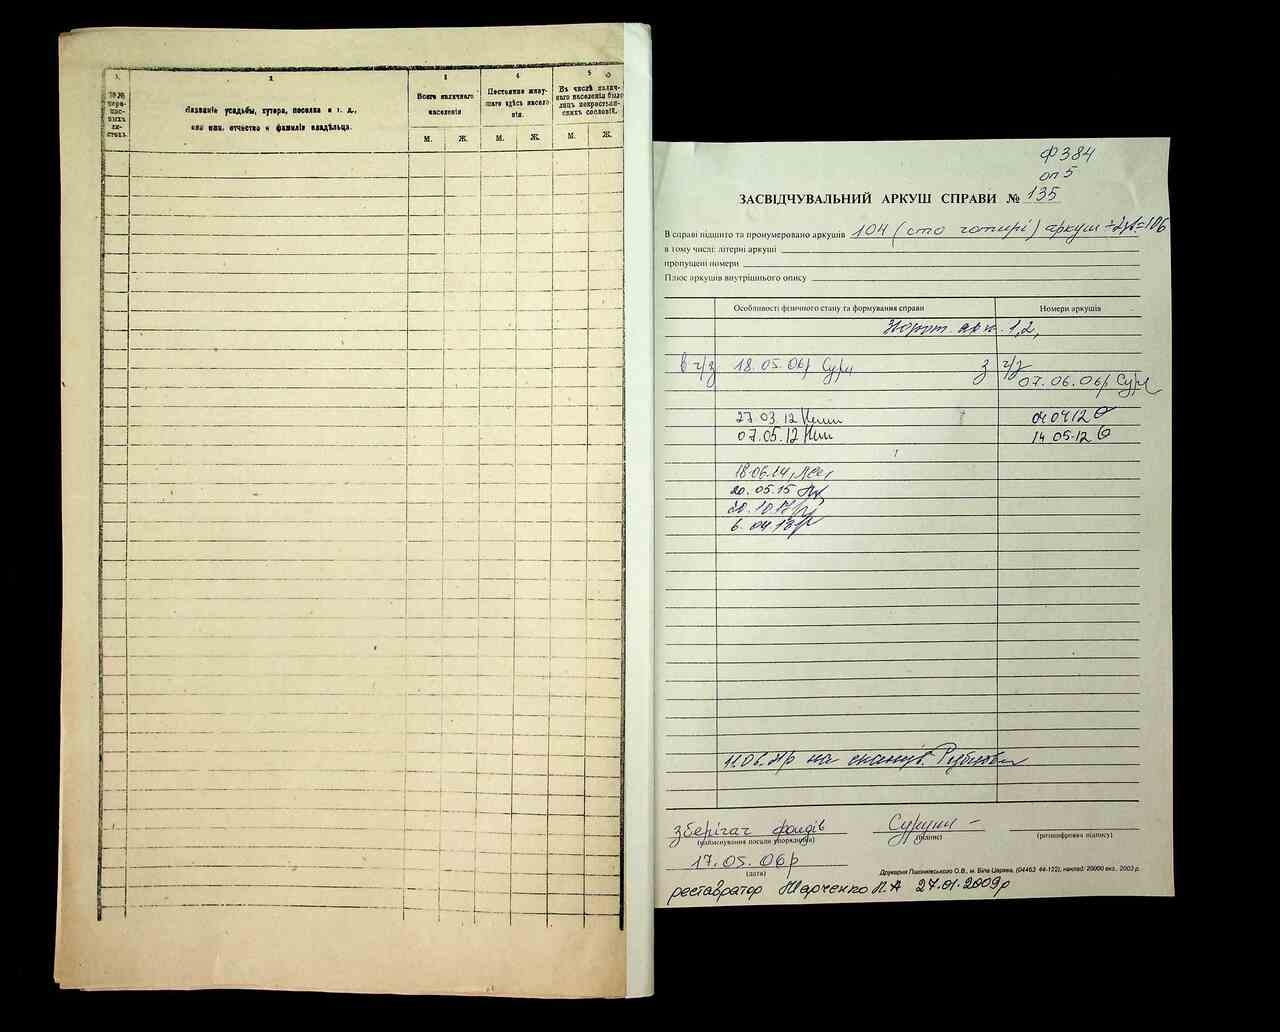 1. 2 3 4 5
№№ пере-пис-ныхъ ли-стовъ.
Названіе усадьбы, хутора, поселка и т. д.,
или имя, отчество и фамилія владѣльца.
Всего наличнаго
населенія
Постоянно живу-
щаго здѣсь населе-
нія.
Въ числѣ налич-
наго населенія было
лицъ некрестьян-
скихъ сословій.
М. Ж. М. Ж. М. Ж.
Ф384
оп 5
ЗАСВІДЧУВАЛЬНИЙ АРКУШ СПРАВИ № 135
В справі підшито та пронумеровано аркушів 104 (сто чотирі) аркуш +2=106
в тому числі: літерні аркуші
пропущені номери
Плюс аркушів внутрішнього опису
Особливості фізичного стану та формування справи Номери аркушів
арк. 1,2,
в ч/з 18.05.06р з ч/з
07.06.06р
27 03 12 04 04 12
07.05.12 14 05.12
18.06.14
20.05.15
20.10.17
6.04.18
11.06. на сканув.
зберігач фондів
(найменування посади упорядника) (підпис) (розшифровка підпису)
17.05.06р
(дата)
Друкарня Пшонківського О.В., м. Біла Церква, (04463 44-122), наклад. 20000 екз., 2003 р.
реставратор Марченко Л.А 27.01.2009р